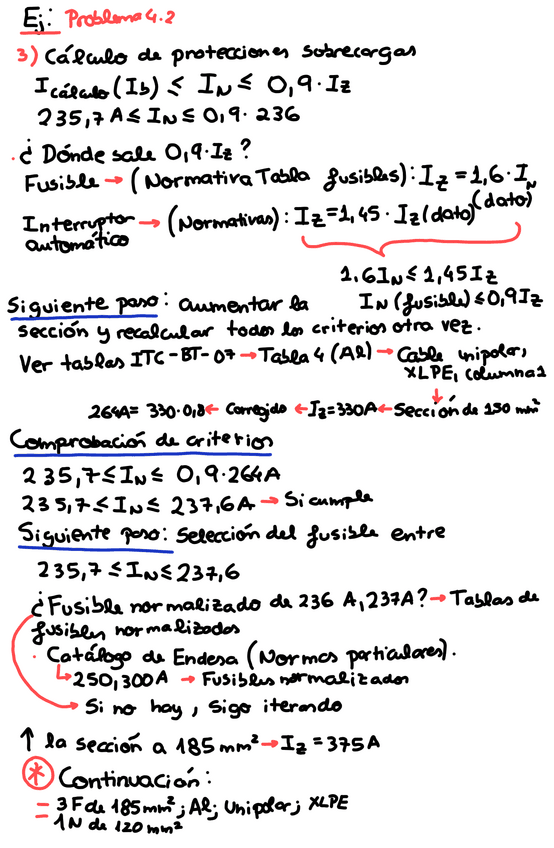 Ej: Problema 4.2
3) Cálculo de protecciones sobrecargas
I cálculo (Ib) ≤ IN ≤ 0,9·Iz
235,7 A ≤ IN ≤ 0,9·236
·¿Dónde sale 0,9·Iz?
Fusible → (Normativa Tabla fusibles): Iz = 1,6·IN (dato)
Interruptor automático → (Normativas): Iz = 1,45·Iz (dato)
1.6 IN ≤ 1,45 Iz
IN (fusible) ≤ 0,9 Iz
Siguiente paso: aumentar la
sección y recalcular todos los criterios otra vez.
Ver tablas ITC-BT-07 → Tabla 4 (Al) → Cable unipolar,
XLPE, columna 1
264A = 330·0,8 ← Corregido ← Iz = 330A ← Sección de 150 mm²
Comprobación de criterios
235,7 ≤ IN ≤ 0,9·264A
235,7 ≤ IN ≤ 237,6 A → Si cumple
Siguiente paso: Selección del fusible entre
235,7 ≤ IN ≤ 237,6
¿Fusible normalizado de 236 A, 237A? → Tablas de
fusibles normalizados
· Catálogo de Endesa (Normas particulares).
↳ 250, 300 A → Fusibles normalizados
→ Si no hay, sigo iterando
↑ la sección a 185 mm² → Iz = 375 A
* Continuación:
= 3F de 185 mm²; Al; Unipolar; XLPE
= 1N de 120 mm²